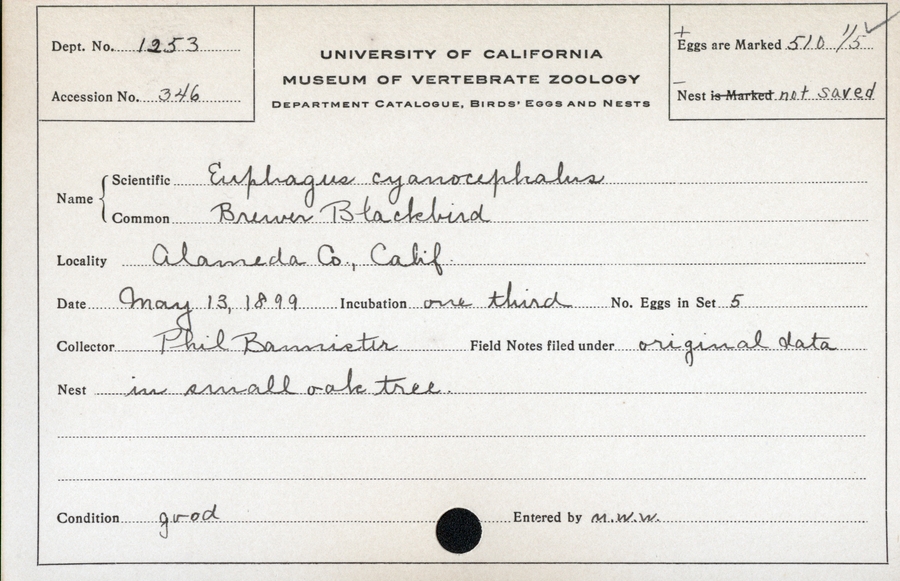 Dept. No. 1253
Accession No. 346
UNIVERSITY OF CALIFORNIA
MUSEUM OF VERTEBRATE ZOOLOGY
DEPARTMENT CATALOGUE, BIRDS' EGGS AND NESTS
Eggs are Marked 510 1/5
Nest is Marked not saved
Name
Scientific Euphagus cyanocephalus
Common Brewer Blackbird
Locality Alameda Co., Calif.
Date May 13, 1899 Incubation one third No. Eggs in Set 5
Collector Phil Bannister Field Notes filed under original data
Nest in small oak tree.
Condition good Entered by M.W.W.